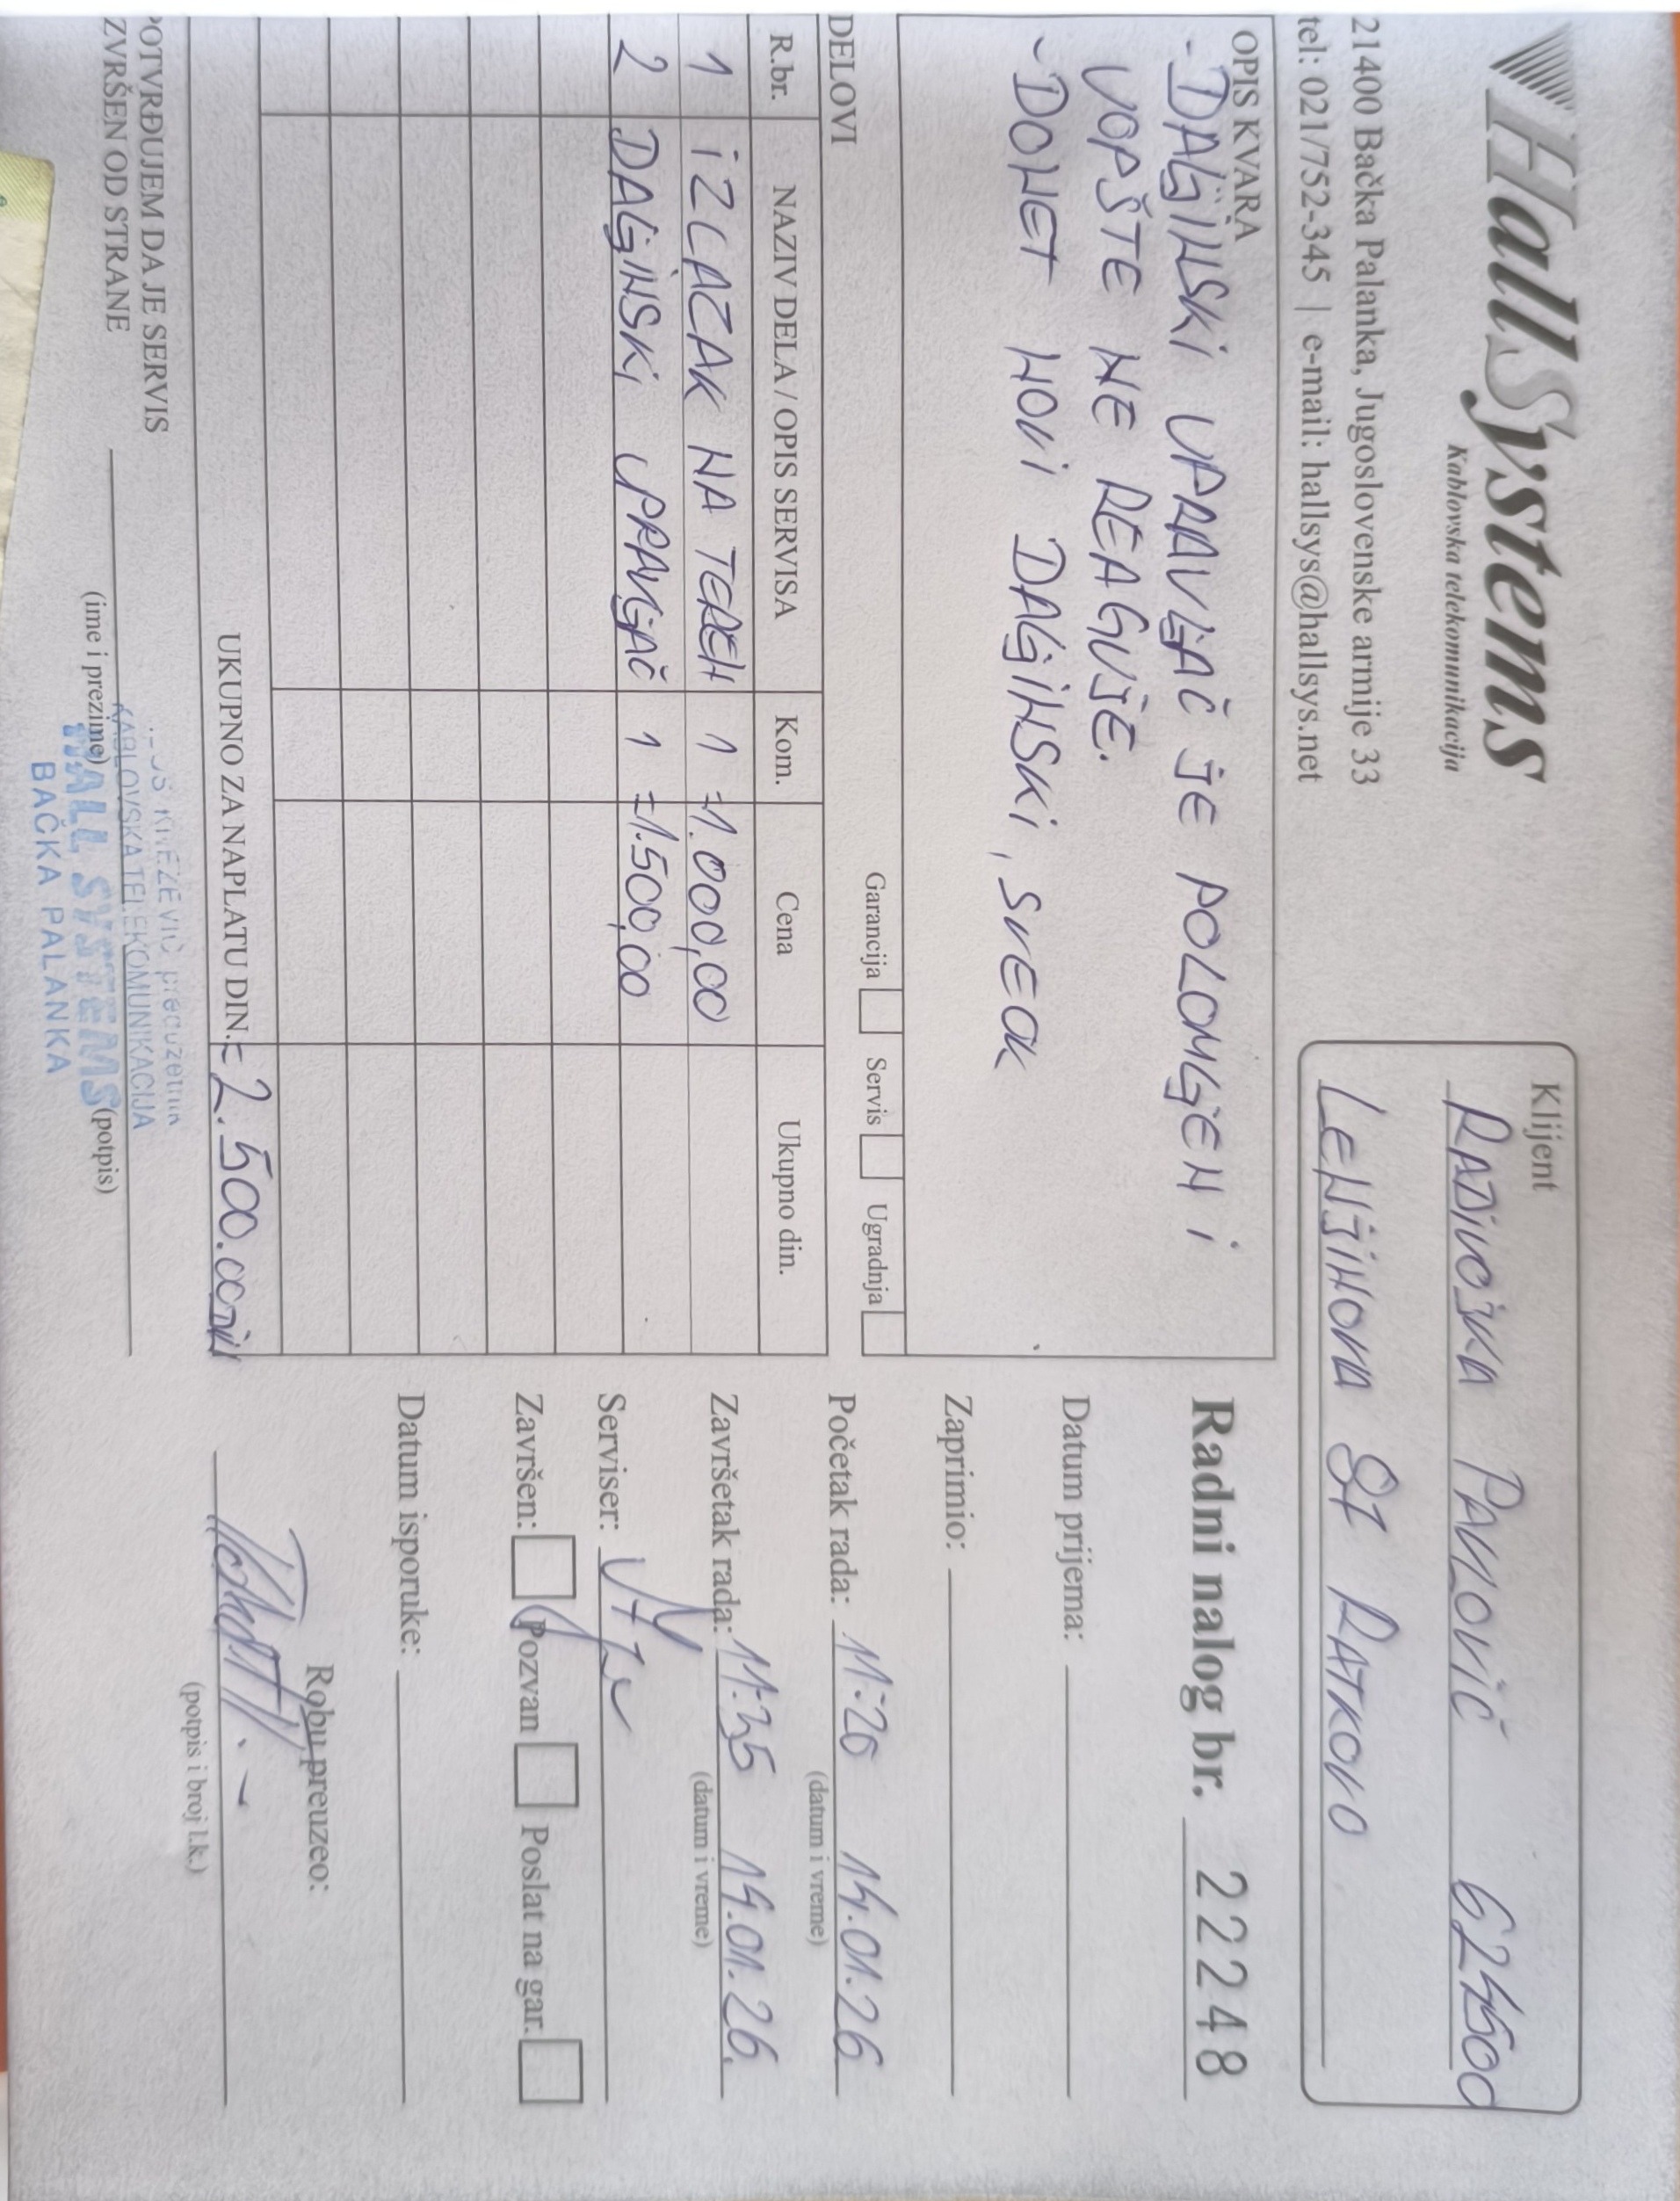 HallSystems
Kablovska telekomunikacija
21400 Bačka Palanka, Jugoslovenske armije 33
tel: 021/752-345 | e-mail: hallsys@hallsys.net
Klijent
RADIVOJKA PAVLOVIĆ
LENJINOVA 87 RATKOVO
OPIS KVARA
- DALJINSKI UPRAVLJAČ JE POLOMLJEN I
UOPŠTE NE REAGUJE.
- DONET NOVI DALJINSKI, SVE OK
Garancija Servis Ugradnja
DELOVI
R.br. NAZIV DELA / OPIS SERVISA Kom. Cena Ukupno din.
1 IZLAZAK NA TEREN 1 =1.000,00
2 DALJINSKI UPRAVLJAČ 1 =1.500,00
UKUPNO ZA NAPLATU DIN. =2.500.00
POTVRĐUJEM DA JE SERVIS
IZVRŠEN OD STRANE
(ime i prezime) (potpis)
KNEŽEVIĆ preduzetnik
KABLOVSKA TELEKOMUNIKACIJA
HALL SYSTEMS
BAČKA PALANKA
Radni nalog br. 22248
Datum prijema:
Zaprimio:
Početak rada: 11:20 14.01.26
(datum i vreme)
Završetak rada: 11:35 14.01.26.
(datum i vreme)
Serviser:
Završen: Pozvan Poslat na gar.
Datum isporuke:
Robu preuzeo:
(potpis i broj l.k.)